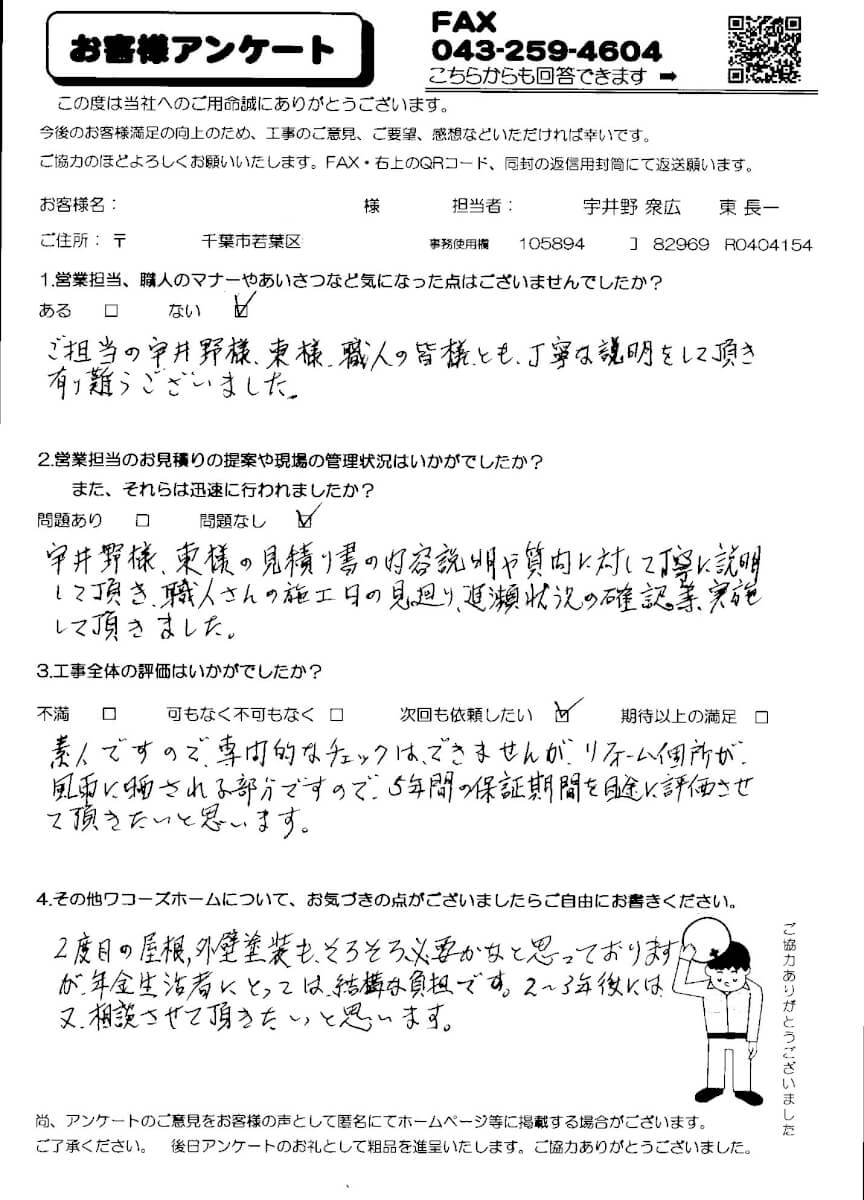 お客様アンケート
FAX
043-259-4604
こちらからも回答できます ➡
この度は当社へのご用命誠にありがとうございます。
今後のお客様満足の向上のため、工事のご意見、ご要望、感想などいただければ幸いです。
ご協力のほどよろしくお願いいたします。FAX・右上のQRコード、同封の返信用封筒にて返送願います。
お客様名： 様 担当者： 宇井野 衆広 東 長一
ご住所：〒 千葉市若葉区 事務使用欄 105894 J 82969 R0404154
1.営業担当、職人のマナーやあいさつなど気になった点はございませんでしたか？
ある □ ない ☑
ご担当の宇井野様、東様、職人の皆様とも、丁寧な説明をして頂き
有り難うございました。
2.営業担当のお見積りの提案や現場の管理状況はいかがでしたか？
また、それらは迅速に行われましたか？
問題あり □ 問題なし ☑
宇井野様、東様の見積り書の内容説明や質問に対して丁寧に説明
して頂き、職人さんの施工日の見廻り、進瀬状況の確認等、実施
して頂きました。
3.工事全体の評価はいかがでしたか？
不満 □ 可もなく不可もなく □ 次回も依頼したい ☑ 期待以上の満足 □
素人ですので、専門的なチェックは、できませんが、リフォーム個所が、
風雨に晒される部分ですので、5年間の保証期間を目途に評価させ
て頂きたいと思います。
4.その他ワコーズホームについて、お気づきの点がございましたらご自由にお書きください。
2度目の屋根,外壁塗装も、そろそろ必要かなと思っております
が、年金生活者にとっては、結構な負担です。2〜3年後には、
又、相談させて頂きたいと思います。
ご協力ありがとうございました
尚、アンケートのご意見をお客様の声として匿名にてホームページ等に掲載する場合がございます。
ご了承ください。 後日アンケートのお礼として粗品を進呈いたします。ご協力ありがとうございました。